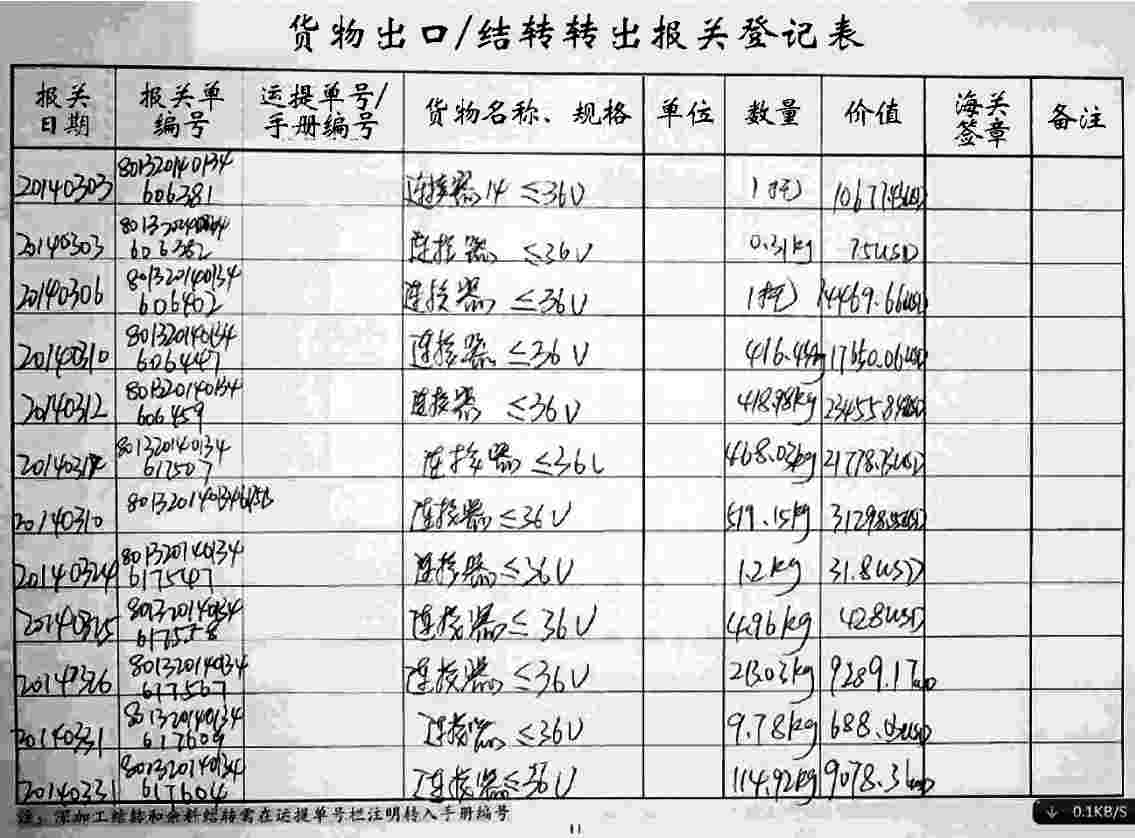 货物出口/结转转出报关登记表
报关日期 报关单编号 运提单号/手册编号 货物名称、规格 单位 数量 价值 海关签章 备注
20140303 801320140134606381 连接器14 ≤36V 1托 10677.43USD
20140303 801320140134606382 连接器 ≤36V 0.31kg 75USD
20140306 801320140134606402 连接器 ≤36V 1托 14469.66USD
20140310 801320140134606447 连接器 ≤36V 17350.06USD
20140312 801320140134606459 连接器 ≤36V 418.98kg
801320140134617507 连接器 ≤36V 468.03kg
20140310 连接器 ≤36V 519.15kg
20140324 801320140134617547 连接器 ≤36V 1.2kg 31.8USD
20140325 连接器 ≤36V 4.96kg 428USD
20140326 801320140134617567 连接器 ≤36V 213.03kg 9289.17USD
20140331 801320140134617609 连接器 ≤36V 9.78kg
20140331 801320140134617604 连接器 ≤36V 114.92kg
注：深加工结转和余料结转需在运提单号栏注明转入手册编号
11
0.1KB/S